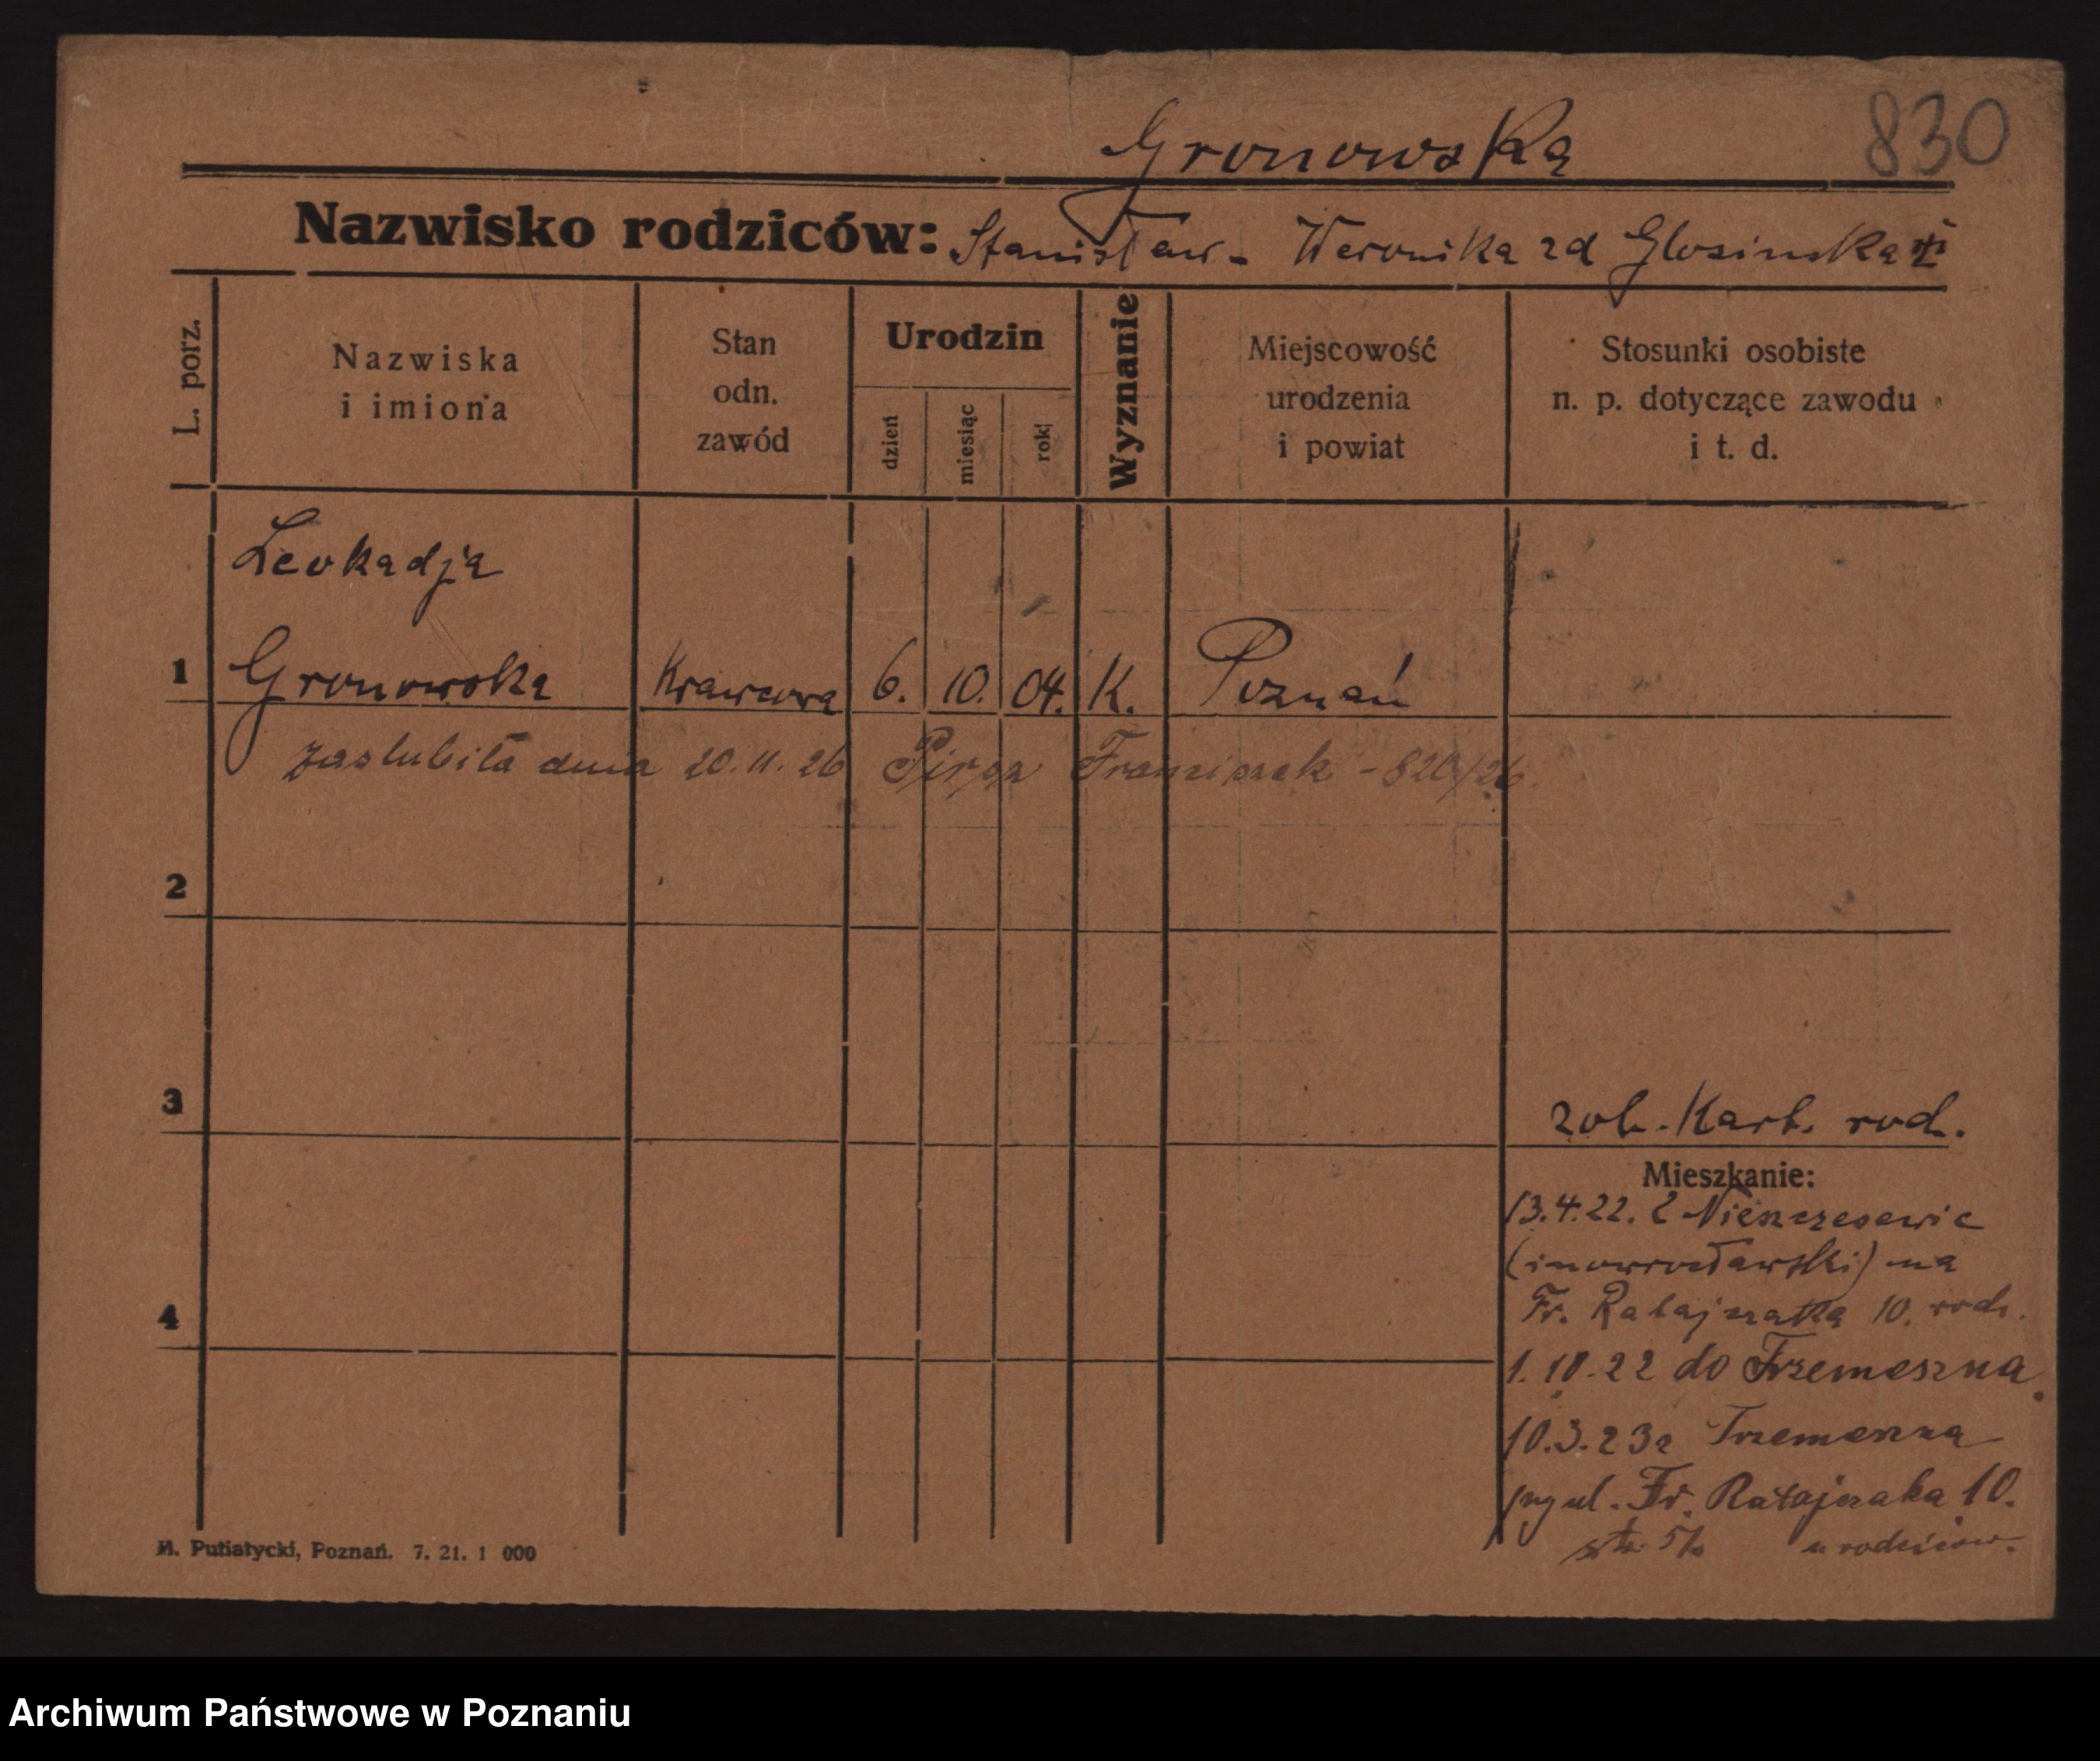 Gronowska
830
Nazwisko rodziców: Stanisław - Weronika zd Glosinska
L. porz.
Nazwiska
i imiona
Stan
odn.
zawód
Urodzin
dzień
miesiąc
rok
Wyznanie
Miejscowość
urodzenia
i powiat
Stosunki osobiste
n. p. dotyczące zawodu
i t. d.
Leokadja
1 Gronowska Krawcowa 6. 10. 04. K. Poznań
zaslubiła dnia 20.11.26 Franciszek - 820/26
2
3
zob. Kart. rod.
Mieszkanie:
13.4.22. z
(inowrocławski) na
Fr. Ratajczaka 10. rodz.
4
1.10.22 do Trzemeszna
10.3.23 z Trzemeszna
ul. Fr. Ratajczaka 10.
u rodziców.
M. Putiatycki, Poznań. 7. 21. 1 000
Archiwum Państwowe w Poznaniu